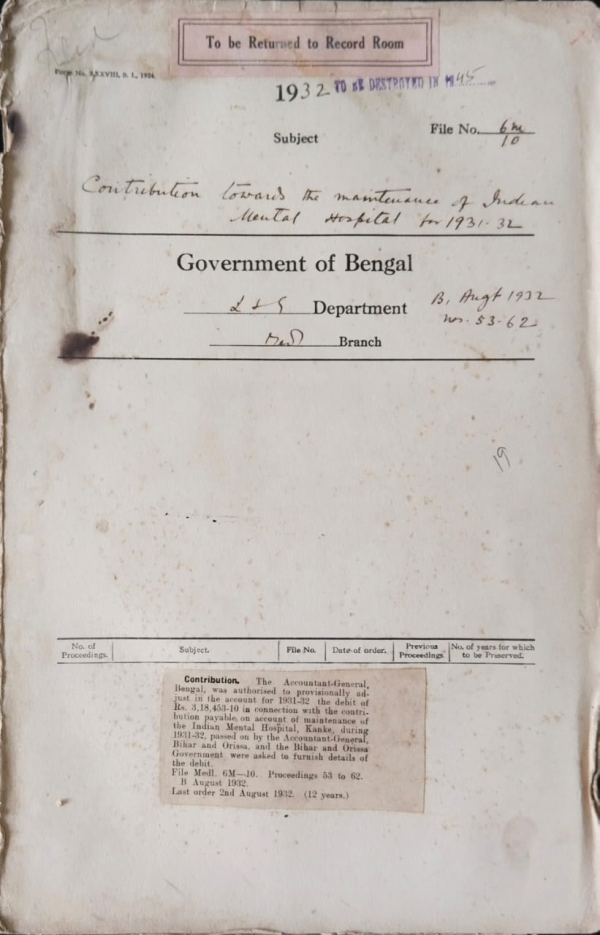 To be Returned to Record Room
Form No. XXXVIII, S. 1, 1924.
1932 TO BE DESTROYED IN 1945
Subject
File No. 6M/10
Contribution towards the maintenance of Indian
Mental Hospital for 1931-32
Government of Bengal
Department
B, Augt 1932
nos. 53-62
Branch
19
No. of Proceedings. Subject. File No. Date of order. Previous Proceedings. No. of years for which to be Preserved.
Contribution. The Accountant-General,
Bengal, was authorised to provisionally ad-
just in the account for 1931-32 the debit of
Rs. 3,18,453-10 in connection with the contri-
bution payable on account of maintenance of
the Indian Mental Hospital, Kanke, during
1931-32, passed on by the Accountant-General,
Bihar and Orissa, and the Bihar and Orissa
Government were asked to furnish details of
the debit.
File Medl. 6M—10. Proceedings 53 to 62.
B August 1932.
Last order 2nd August 1932. (12 years.)